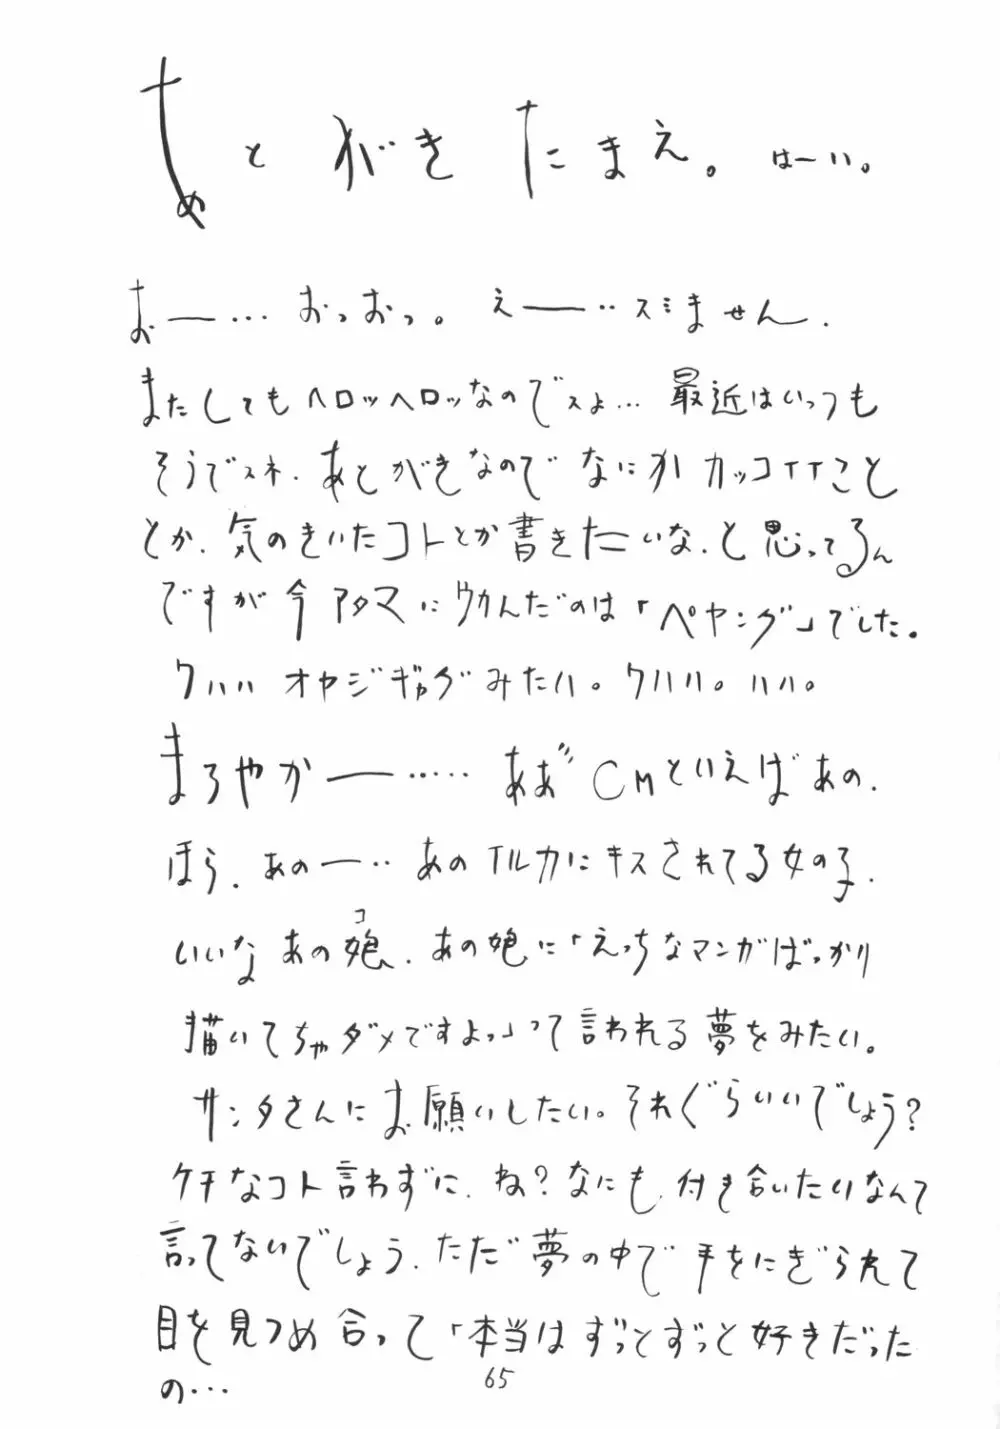 あとがきたまえ。はーい。
おー… おっおっ。えー‥スミません.
またしてもヘロッヘロッなのでスよ… 最近はいっつも
そうでスネ.あとがきなのでなにかカッコイイこと
とか.気のきいたコトとか書きたいな.と思ってるん
ですが今アタマにウカんだのは「ペヤング」でした。
クハハ オヤジギャグみたい。クハハ。ハハ。
まろやかー…‥ ああ〃CMといえばあの.
ほら.あのー‥ あのイルカにキスされてる女の子.
いいなあの娘コ.あの娘に「えっちなマンガばっかり
描いてちゃダメですよっ」って言われる夢をみたい。
サンタさんにお願いしたい。それぐらいいでしょう?
ケチなコト言わずに.ね?なにも.付き合いたいなんて
言ってないでしょう.ただ夢の中で手をにぎられて
目を見つめ合って「本当はずっとずっと好きだった
の…
65